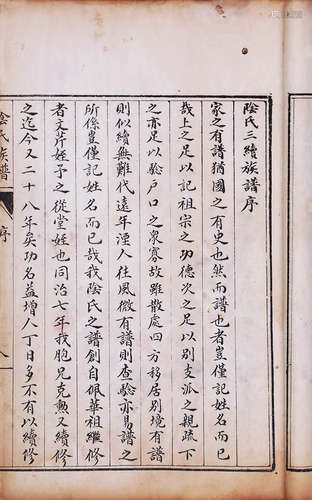 陰氏三續族譜序
家之有譜猶國之有史也然而譜也者豈僅記姓名而已
哉上之足以記祖宗之功德次之足以別支派之親疏下
之亦足以驗戶口之衆寡故雖散處四方移居別境有譜
則似續無難代遠年湮人往風微有譜則查驗亦易譜之
所係豈僅記姓名而已哉我陰氏之譜創自佩華祖繼修
者文芹姪予之從堂姪也同治七年我胞兄克勲又續修
之迄今又二十八年矣功名益增人丁日多不有以續修
陰氏族譜
序